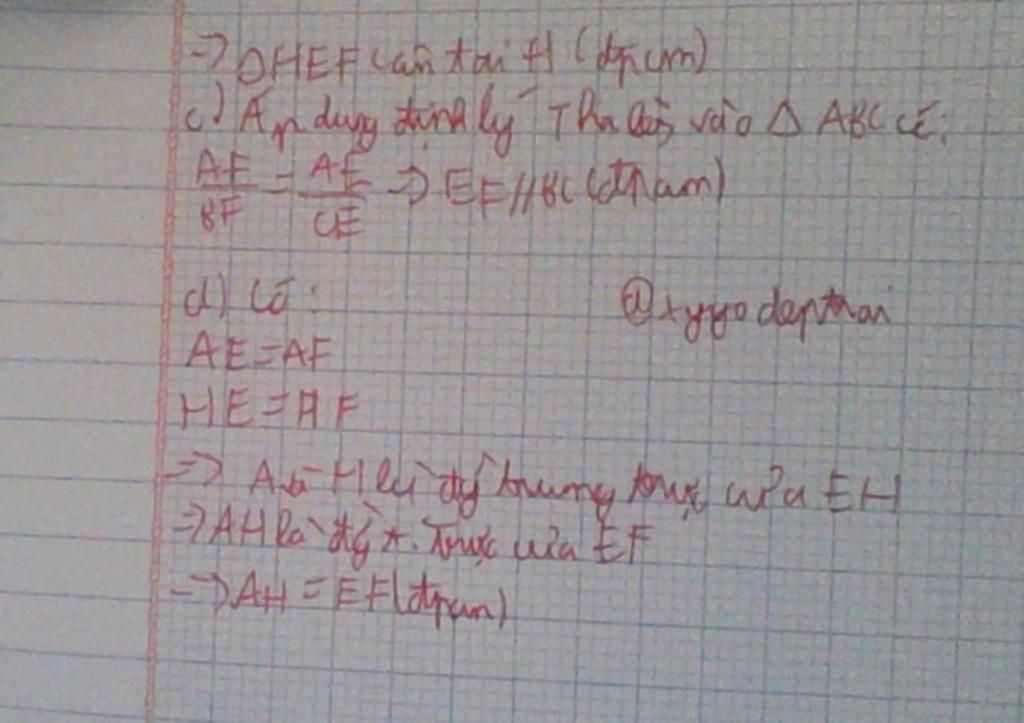 => ΔHEF cân tại H (đpcm)
c) Áp dụng định lý Tha Lés vào Δ ABC có:
AF/BF = AE/CE => EF//BC (đpcm)
d) Có:
@tyyodepthai
AE = AF
HE = HF
=> A và H là đg trung trực của EH
=> AH là đg t. trực của EF
=> AH = EF (đpcm)